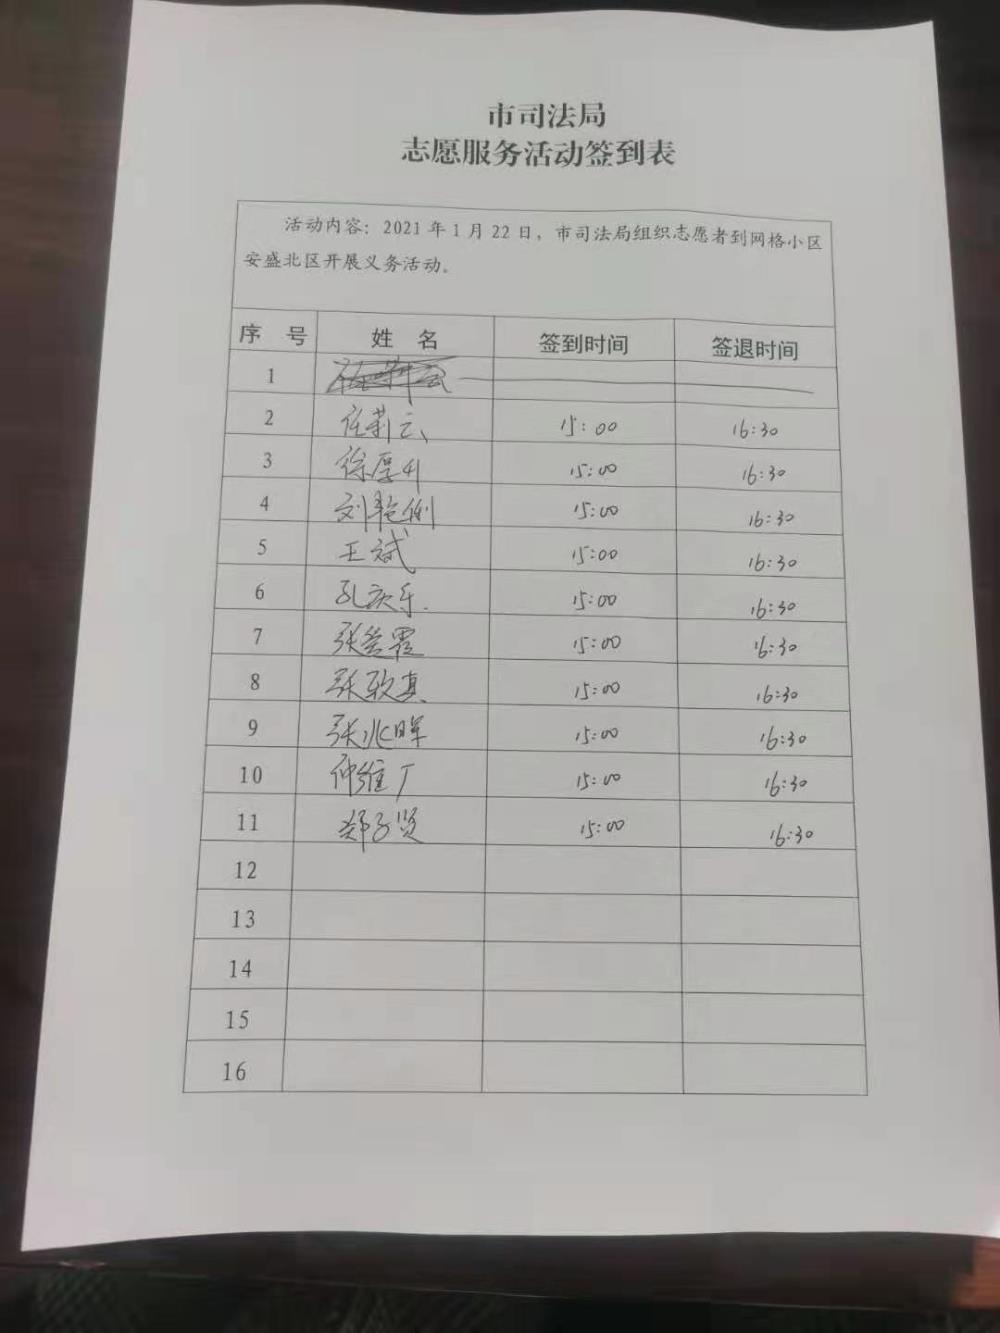 市司法局
志愿服务活动签到表
活动内容：2021年1月22日，市司法局组织志愿者到网格小区
安盛北区开展义务活动。
序 号 姓 名 签到时间 签退时间
1
2 任莉云 15:00 16:30
3 徐厚升 15:00 16:30
4 刘艳俐 15:00 16:30
5 王斌 15:00 16:30
6 孔庆乐 15:00 16:30
7 张爱霞 15:00 16:30
8 张致真 15:00 16:30
9 张兆晖 15:00 16:30
10 仲维广 15:00 16:30
11 郑子贤 15:00 16:30
12
13
14
15
16